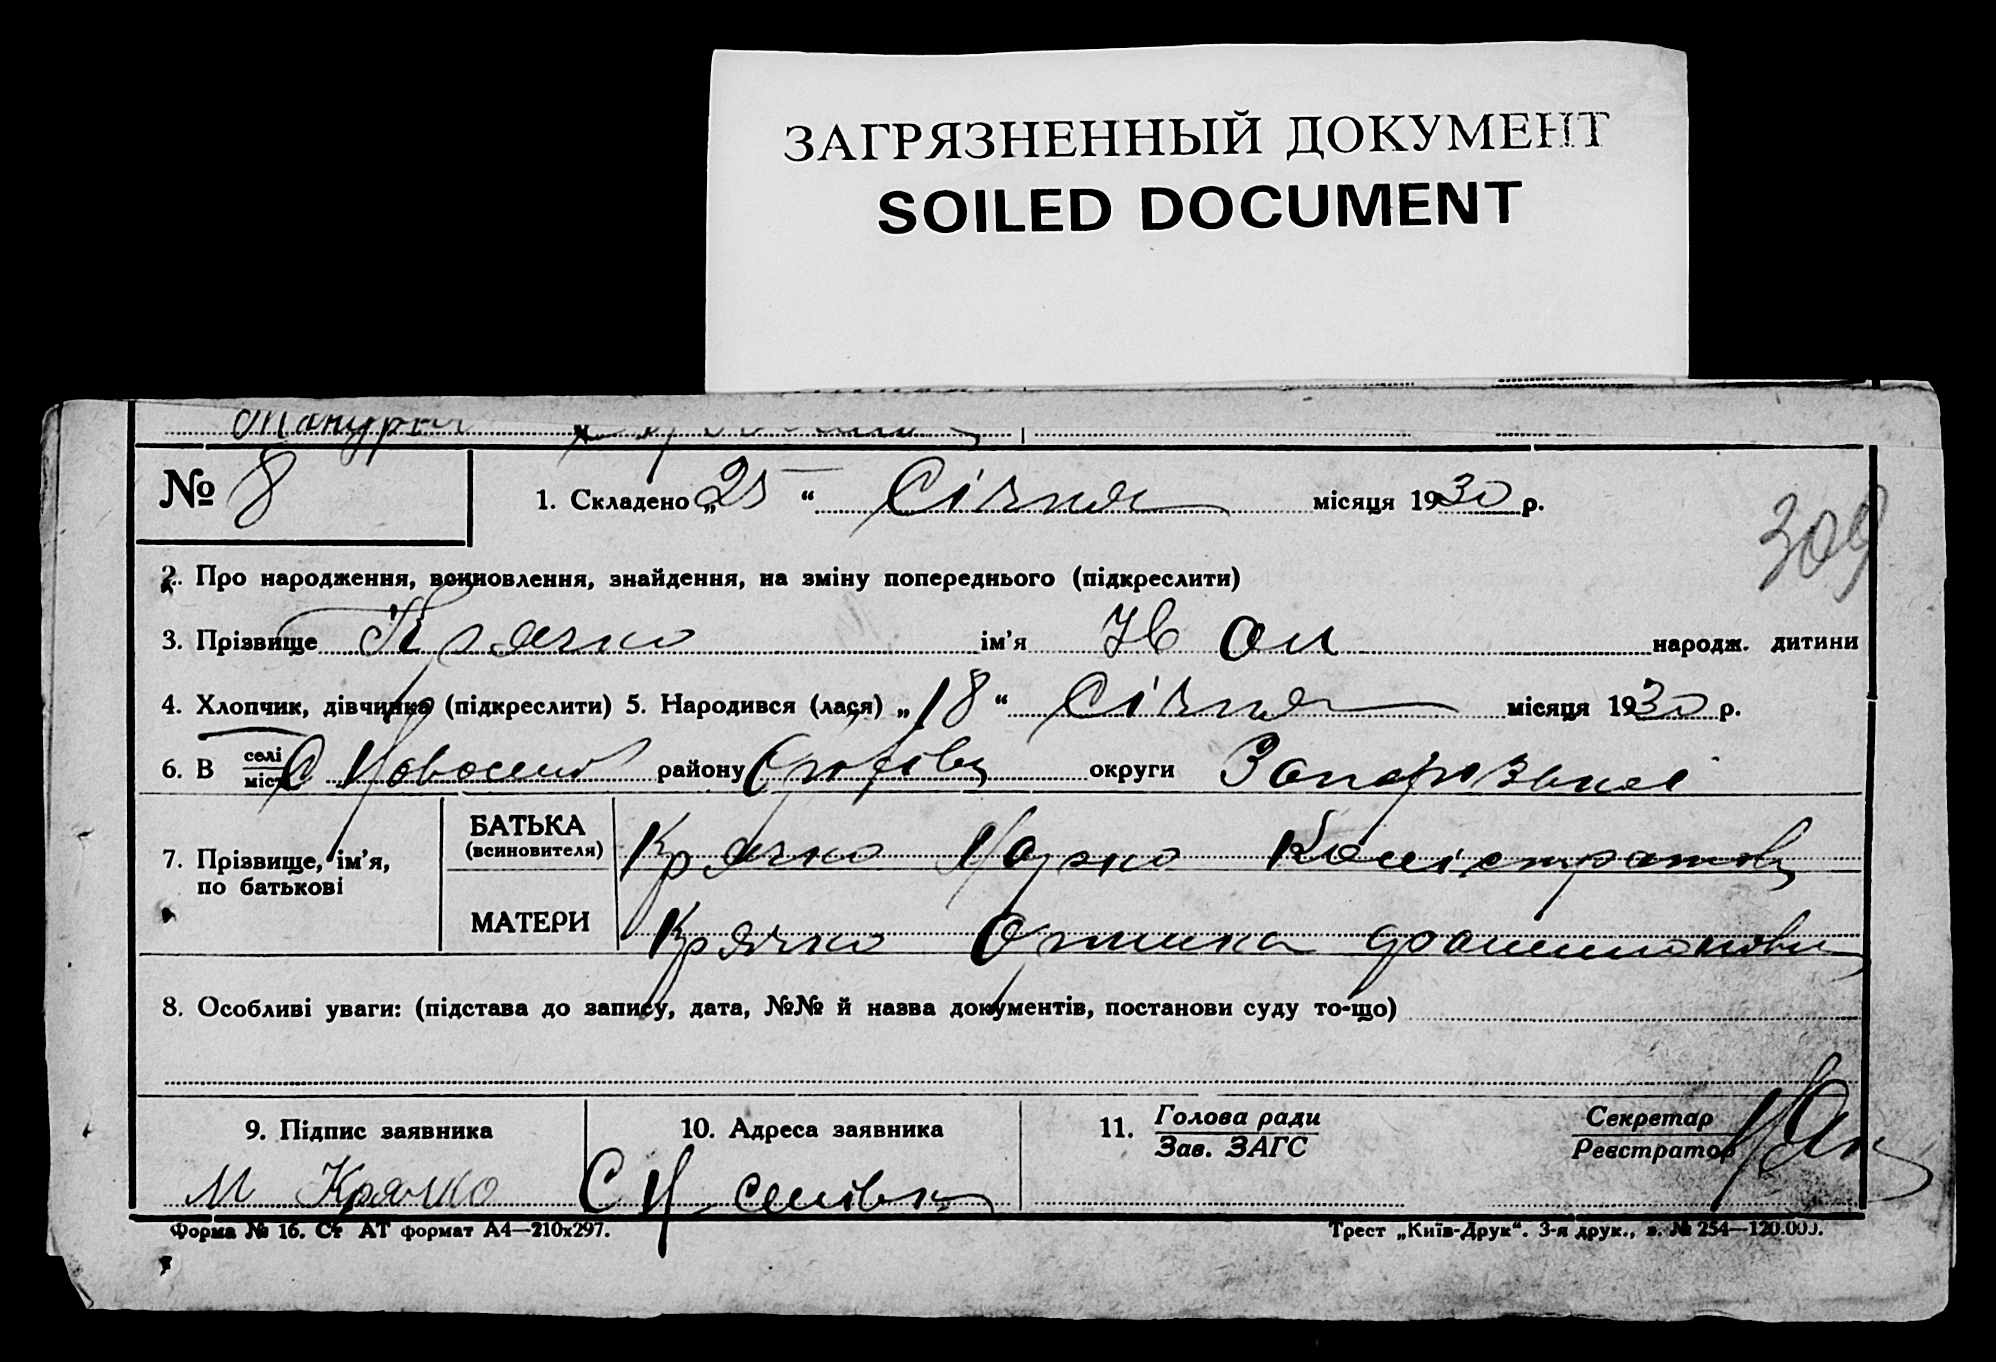 ЗАГРЯЗНЕННЫЙ ДОКУМЕНТ
SOILED DOCUMENT
№ 8
1. Складено „25“ Січня місяця 1930 р.
309
2. Про народження, всиновлення, знайдення, на зміну попереднього (підкреслити)
3. Прізвище Крячко ім'я Іван народж. дитини
4. Хлопчик, дівчинка (підкреслити) 5. Народився (лася) „18“ Січня місяця 1930 р.
6. В селі/місті району округи Запорізької
7. Прізвище, ім'я, по батькові
БАТЬКА (всиновителя) Крячко Марко Калістратов
МАТЕРИ Крячко
8. Особливі уваги: (підстава до запису, дата, №№ й назва документів, постанови суду то-що)
9. Підпис заявника 10. Адреса заявника 11. Голова ради/Зав. ЗАГС Секретар/Реєстратор
М Крячко
Форма № 16. Ст АТ формат А4—210х297. Трест „Київ-Друк“. 3-я друк., з. № 254—120.000.